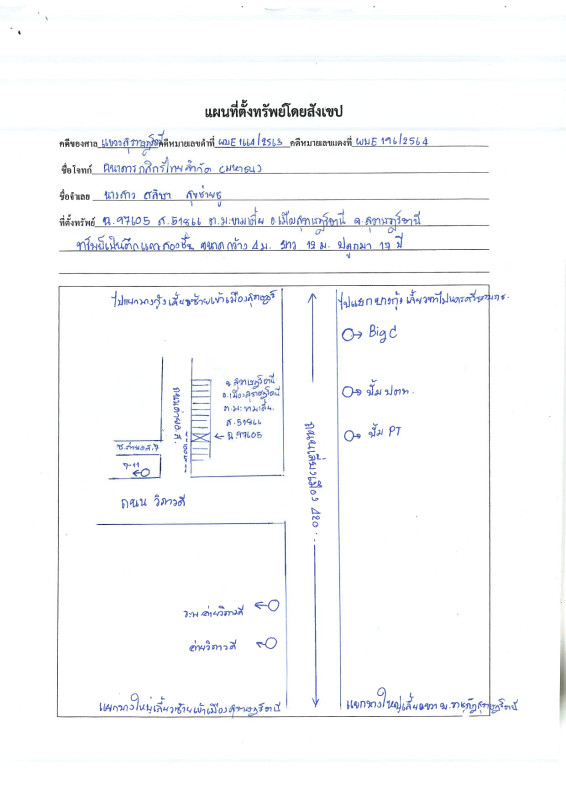 แผนที่ตั้งทรัพย์โดยสังเขป
คดีของศาล แขวงสุราษฎร์ธานี คดีหมายเลขดำที่ ผบE 1664/2563 คดีหมายเลขแดงที่ ผบE 196/2564
ชื่อโจทก์ ธนาคารกสิกรไทยจำกัด (มหาชน)
ชื่อจำเลย นางสาว ศลิษา
ที่ตั้งทรัพย์ ฉ.97605 ส.51866 ต.มะขามเตี้ย อ.เมืองสุราษฎร์ธานี จ.สุราษฎร์ธานี
ทรัพย์เป็นตึกแถวสองชั้น ขนาดกว้าง 4 ม. ยาว 12 ม. ปลูกมา 17 ปี
ไปแยกบางกุ้งเลี้ยวซ้ายเข้าเมืองสุราษฎร์
ไปแยกบางกุ้ง เลี้ยวขวาไปนครศรีธรรมราช
Big C
ปั้ม ปตท.
ปั้ม PT
จ.สุราษฎร์ธานี
อ.เมืองสุราษฎร์ธานี
ต.มะขามเตี้ย
ส.51866
ฉ.97605
7-11
ถนน วิภาวดี
ถนนเลี่ยงเมือง 420
ค่ายวิภาวดี
แยกบางใหญ่เลี้ยวซ้ายเข้าเมืองสุราษฎร์ธานี
แยกบางใหญ่เลี้ยวขวา ม.ราชภัฏสุราษฎร์ธานี